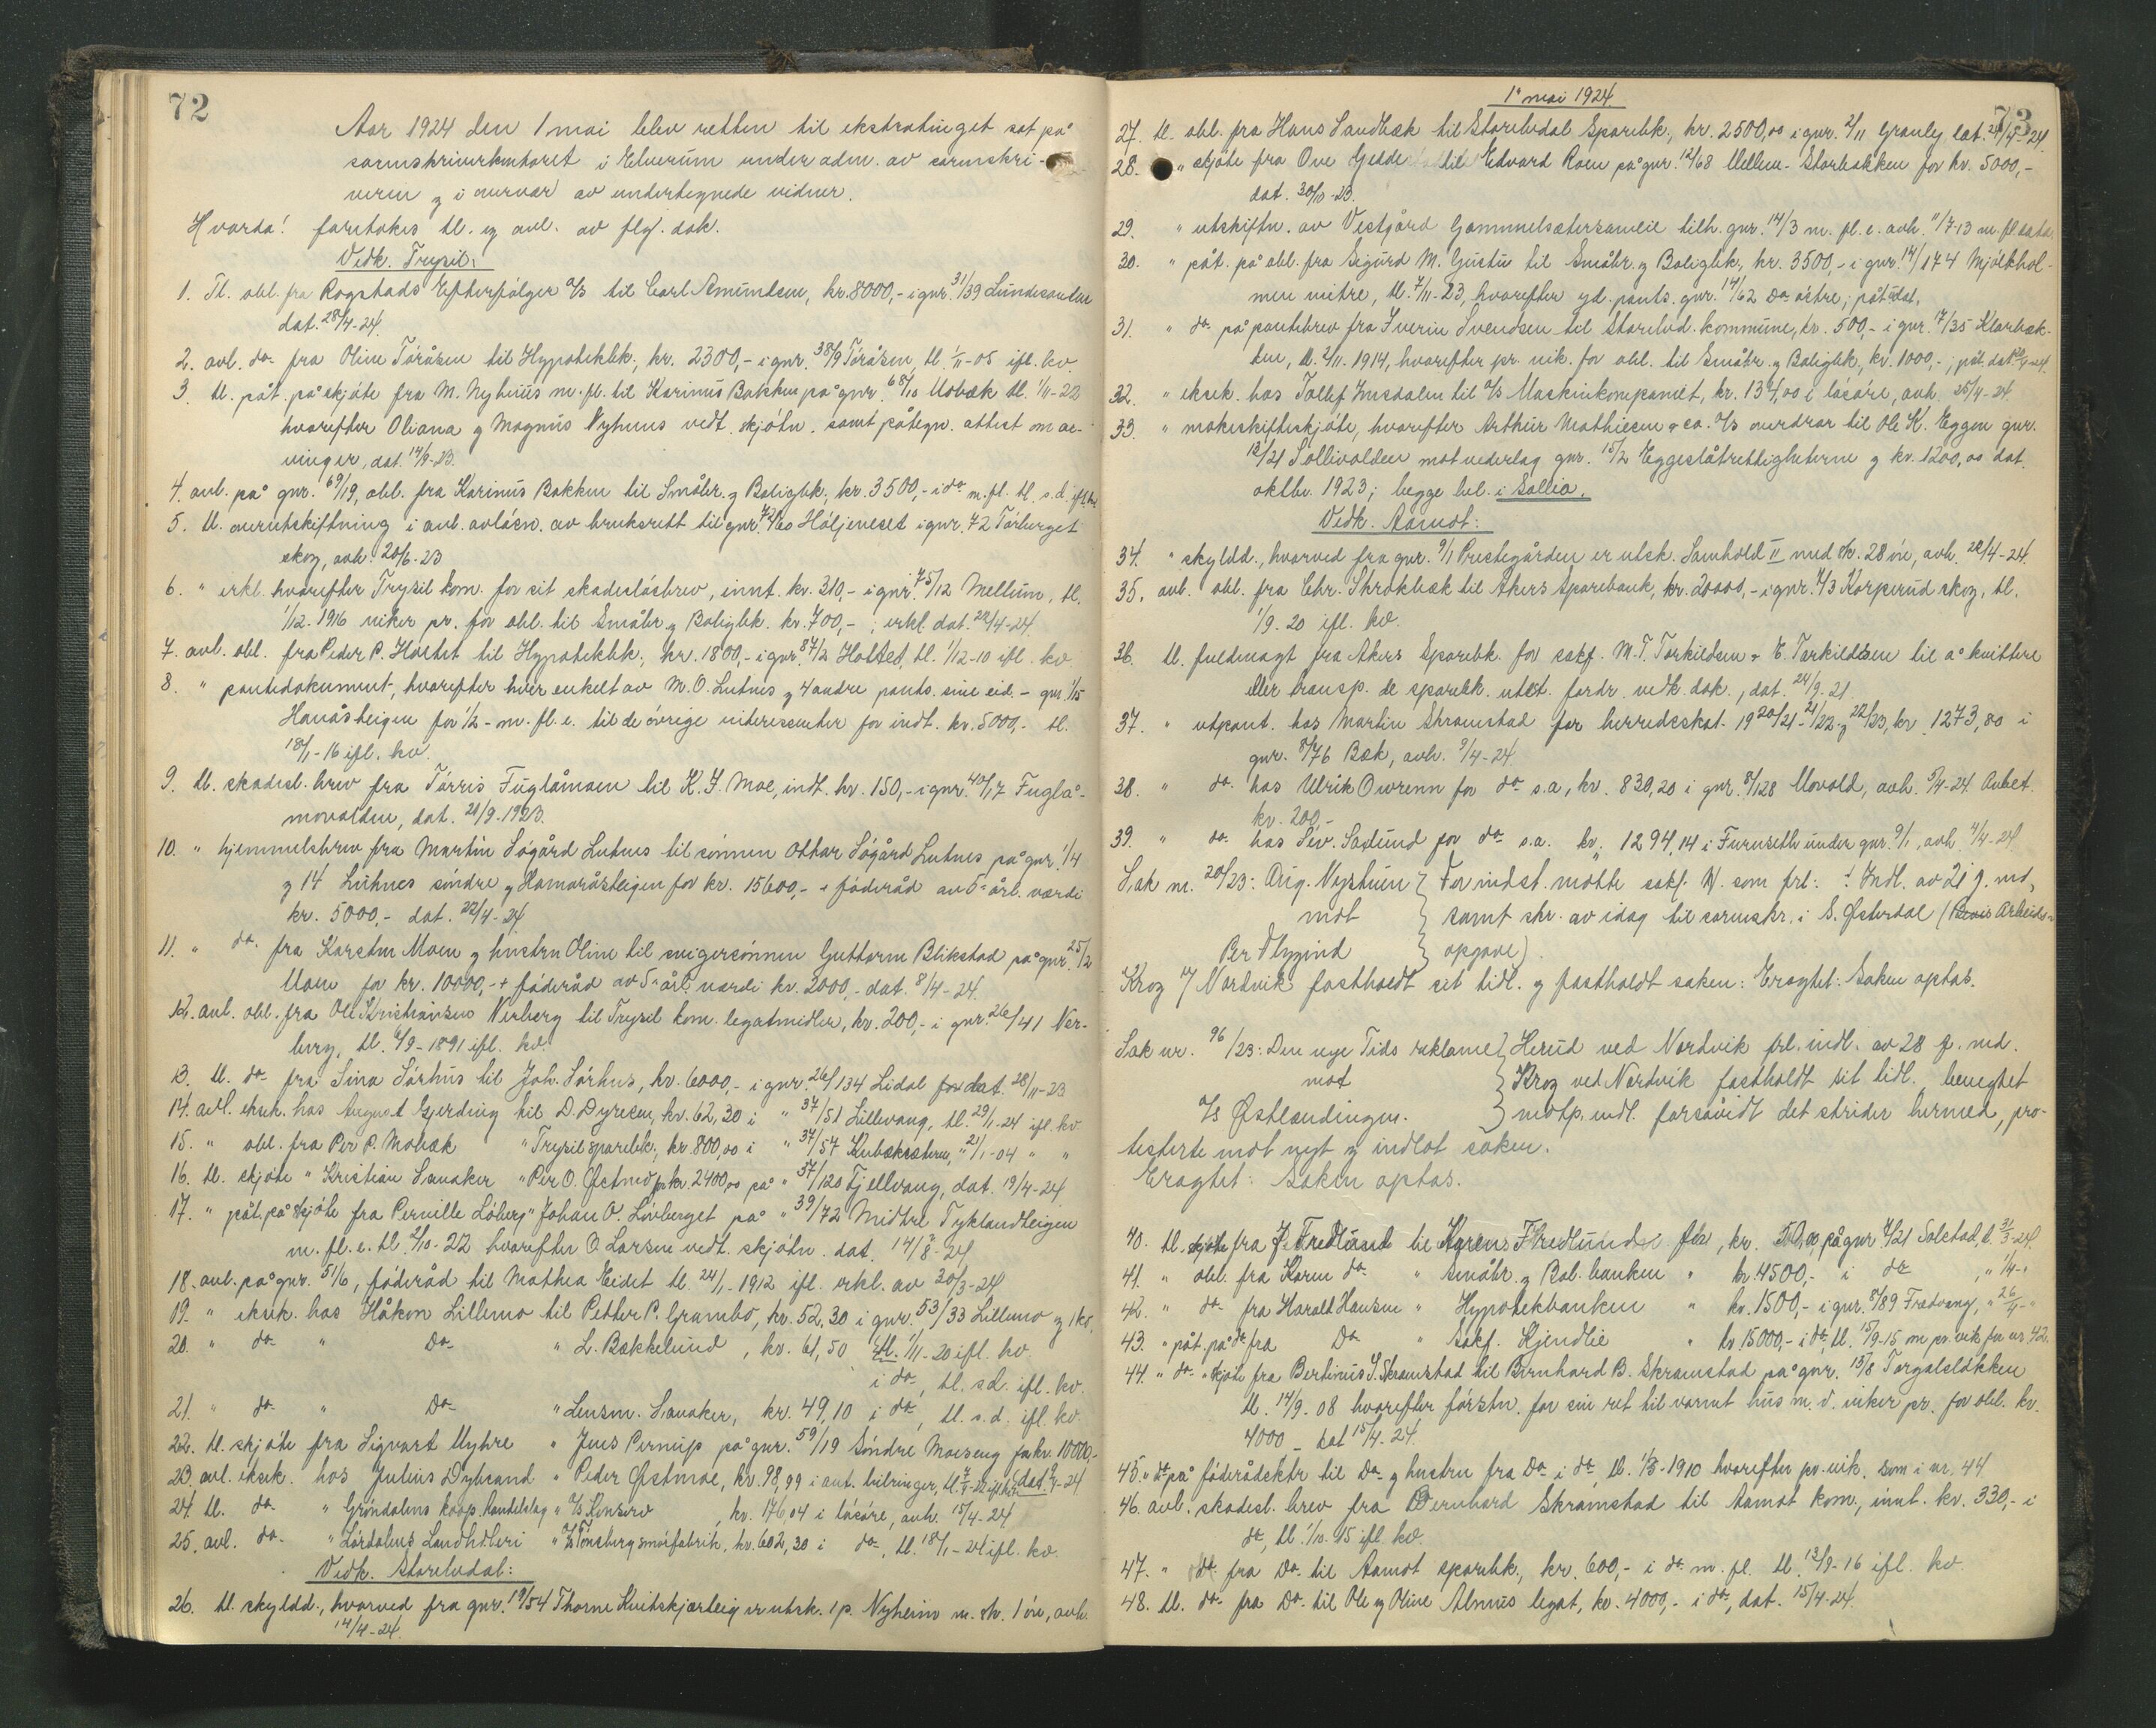 72
Aar 1924 den 1 mai blev retten til ekstratinget sat på
sorenskriverkontoret i Elverum under adm. av sorenskri-
veren og i nærvær av undertegnede vidner.
Hvorda! foretokes tl. og avl. av flg. dok.
Vedk. Trysil:
1. Tl. obl. fra Rogstads Efterfølger A/S til Carl Amundsen, kr. 8000,- i gnr. 31/39 Lundesanden
dat. 28/4-24.
2. avl. do fra Oline Töråsen til Hypotekbk., kr. 2300,- i gnr. 38/9 Töråsen, tl. 1/11-05 ifl. kv.
3. tl. påt. på skjöte fra M. Nyhuus m. fl. til Karinus Bakken på gnr. 68/10 Mobæk tl. 1/11-22
hvorefter Oliana og Magnus Nyhuus vedt. skjötn. samt påtegn. attest om ar-
vinger, dat. 14/9-23.
4. avl. på gnr. 69/19, obl. fra Karinus Bakken til Småbr. og Boligbk. kr. 3500,- i do m. fl. tl. s.d. ifl. kv.
5. tl. overutskiftning i anl. avlösn. av bruksrett til gnr. 72/60 Höljeneset i gnr. 72 Törberget
skog, avh. 20/6-23
6. " erkl. hvorefter Trysil kom. for sit skadeslösbrev, innt. kr. 310,- i gnr. 75/12 Mellum, tl.
1/12-1916 viker pr. for obl. til Småbr. og Boligbk. kr. 700,- ; erkl. dat. 22/4-24.
7. avl. obl. fra Peder P. Holtet til Hypotekbk., kr. 1800,- i gnr. 87/2 Holtet, tl. 1/12-10 ifl. kv.
8. " pantedokument, hvorefter hver enkelt av M. O. Lutnes og 4 andre pants. sine eid. - gnr. 1/15
Hanåsteigen for 1/2 - m. fl. e. til de övrige interessenter for indt. kr. 5000,- tl.
18/1-16 ifl. kv.
9. tl. skadesl. brev fra Törris Fuglåmoen til K. J. Moe, indt. kr. 150,- i gnr. 40/17 Fuglå-
movolden, dat. 21/9-1923.
10. " hjemmelsbrev fra Martin Sögård Lutnes til sönnen Othar Sögård Lutnes på gnr. 1/4
og 14 Lutnes söndre og Hamaråsteigen for kr. 15600,- + föderåd av 5-årl. værdi
kr. 5000,- dat. 22/4-24.
11. " do fra Karsten Moen og hustru Oline til svigersönnen Guttorm Blikstad på gnr. 25/2
Moen for kr. 10000,- + föderåd av 5-årl. værdi kr. 2000,- dat. 8/4-24.
12. avl. obl. fra Ole Kristiansen Nerberg til Trysil kom. legatmidler, kr. 200,- i gnr. 26/41 Ner-
berg, tl. 6/9-1891 ifl. kv.
13. tl. do fra Sina Sörhus til Joh. Sörhus, kr. 6000,- i gnr. 26/134 Lidal dat. 28/11-23
14. avl. eksek. hos August Gjerding til D. Dyresen, kr. 62,30 i " 37/51 Lillevang, tl. 29/1-24 ifl. kv.
15. " obl. fra Per P. Mobæk " Trysil sparebk., kr. 800,00 i " 37/57 Kubekksæteren, " 21/1-04 " "
16. tl. skjöte " Kristian Sanaker " Per O. Østmo for kr. 2400,00 på " 37/120 Fjellvang, dat. 19/4-24
17. " påt. på skjöte fra Pernille Löberg " Johan O. Lövberget på " 39/72 Midtre Tyklandteigen
m. fl. e. tl. 2/10-22 hvorefter O. Larsen vedt. skjötn. dat. 14/8-24.
18. avl. på gnr. 51/6, föderåd til Mathea Eidet tl. 24/1-1912 ifl. erkl. av 30/3-24.
19. " eksek. hos Håkon Lillemo til Petter P. Grambo, kr. 52,30 i gnr. 53/33 Lillemo og 1 ks.
20. " do " Do " L. Bækkelund, kr. 61,50 tl. 1/11-20 ifl. kv.
i do, tl. s.d. ifl. kv.
21. " do " Do " Lensm. Sanaker, kr. 49,10 i do, tl. s.d. ifl. kv.
22. tl. skjöte fra Sigvart Myhre " Jens Pernup på gnr. 59/19 Söndre Moeseng for kr. 10000,-
23. avl. eksek. hos Julius Dybsand " Peder Østmoe, kr. 98,99 i ant. bilringer,
24. tl. do " Gröndalens koop. handelslag " A/S Konsero, kr. 176,04 i lösöre, avh. 15/4-24
25. avl. do " Lördalens Landhdleri " A/S Tönsberg smörfabrik, kr. 602,30 i do, tl. 18/1-24 ifl. kv.
Vedk. Storelvdal:
26. tl. skyldd., hvorved fra gnr. 19/54 Thorne Kvitskjærteig er utsk. 1 p. Nyheim m. sk. 1 öre, avh.
14/4-24.
1' mai 1924
73
27. tl. obl. fra Hans Sandbæk til Storelvdal Sparebk., kr. 2500,00 i gnr. 2/11 Granly dat.
28. " skjöte fra Ove Gjedde til Edvard Roen på gnr. 12/68 Mellem-Storbakken for kr. 5000,-
dat. 30/10-23.
29. " utskiftn. av Vestgård Gammelsætersameie tilh. gnr. 14/3 m. fl. e. avh. 11/7-13 m. fl. data
30. " påt. på obl. fra Sigurd M. Gustu til Småbr. og Boligbk., kr. 3500,- i gnr. 14/174 Mjölkhol-
men vestre, tl. 7/11-23, hvorefter yd. pants. gnr. 14/62 Do östre; påt. udat.
31. " do på pantebrev fra Iverin Svendsen til Storelvd. kommune, kr. 500,- i gnr. 17/35 Klarbæk-
ken, tl. 2/11. 1914, hvorefter pr. vik. for obl. til Småbr. og Boligbk. kr. 1000,-,
32. " eksek. hos Tollef Imsdalen til A/S Maskinkompaniet, kr. 134,00 i lösöre, avh. 25/4-24.
33. " makeskifteskjöte, hvorefter Arthur Mathiesen & co. A/S overdrar til Ole K. Eggen gnr.
12/21 Sollivolden mot vederlag gnr. 15/2 Eggeslåtrettigheterne og kr. 1200,00 dat.
oktbr. 1923; begge bel. i Sollia.
Vedk. Aamot:
34. " skyldd., hvorved fra gnr. 9/1 Prestegården er utsk. Samhold II med sk. 28 öre, avh. 22/4-24.
35. avl. obl. fra Chr. Skrokbæk til Akers Sparebank, kr. 20000,- i gnr. 7/3 Korperud skog, tl.
1/9-20 ifl. kv.
36. tl. fuldmagt fra Akers Sparebk. for sakf. M. T. Torkildsen & E. Torkildsen til å kvittere
eller transp. de sparebk. utest. fordr. vedk. dok., dat. 24/9-21.
37. " utpant. hos Martin Skramstad for herredsskat. 1920/21-21/22 og 22/23, kr. 1273,80 i
gnr. 8/76 Bæk, avh. 9/4-24.
38. " do hos Ulrik Owrenn for do s.a., kr. 830,20 i gnr. 8/128 Movold, avh. 9/4-24. Avbet.
kr. 200,-
39. " do hos Sev. Saxlund for do s.a. kr. 1294,14 i Furuseth under gnr. 9/1, avh. 4/4-24.
Sak nr. 20/23: Aug. Nyshuen } For indst. mötte sakf. N. som frl: ÷ Indl. av 21 g. md.,
mot } samt skr. av idag til sorenskr. i S. Østerdal (Arbeids-
Per Flygind } opgave).
Krog v/ Nordvik fastholdt sit tidl. og fastholdt saken: Eragtet: Saken optas.
Sak nr. 96/23: Den nye Tids reklame } Herud ved Nordvik frl. indl. av 28 g. md.
mot } Krog ved Nordvik fastholdt sit tidl. benegtet
A/S Østlendingen. } motp. indl. forsåvidt det strider hermed, pro-
testerte mot nyt og indlot saken.
Eragtet: Saken optas.
40. tl. skjöte fra J. Fredlund til Karen Fredlund for, kr. på gnr. 7/21 Solstad, d. 31/3-24.
41. " obl. fra Karen do " Småbr. og Bol. banken " kr. 4500,- i do, " 1/4-"
42. " do fra Harald Hansen " Hypotekbanken " kr. 1500,- i gnr. 8/89 Fredvang, " 26/4-"
43. " påt. på do fra Do " sakf. Kjendlie " kr. 15000,- i do, tl. 15/9-15 om pr. vik. for nr. 42.
44. " do " skjöte fra Bertinus S. Skramstad til Bernhard B. Skramstad på gnr. 15/8 Torgalslökken
tl. 14/9-08 hvorefter förstn. for sin ret til varmt hus m. v. viker pr. for obl. kr.
4000 - dat 15/4-24.
45. " do på föderådsktr. til Do og hustru fra Do i do tl. 1/3-1910 hvorefter pr. vik. som i nr. 44.
46. avl. skadesl. brev fra Bernhard Skramstad til Aamot kom., innt. kr. 330,- i
do, tl. 1/10-15 ifl. kv.
47. " do fra Do til Aamot sparebk., kr. 600,- i do m. fl. tl. 13/9-16 ifl. kv.
48. tl. do fra Do til Ole og Oline Alnæs legat, kr. 4000,- i do, dat. 15/4-24.